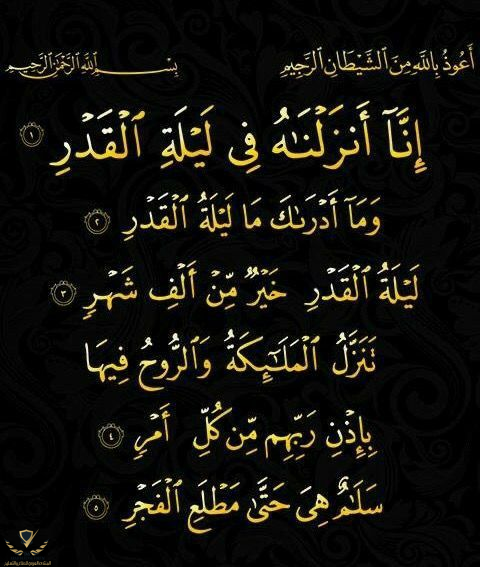 أَعُوذُ بِاللَّهِ مِنَ ٱلشَّيْطَانِ ٱلرَّجِيمِ بِسْمِ ٱللَّهِ ٱلرَّحْمَٰنِ ٱلرَّحِيمِ
إِنَّآ أَنزَلْنَٰهُ فِى لَيْلَةِ ٱلْقَدْرِ ١
وَمَآ أَدْرَىٰكَ مَا لَيْلَةُ ٱلْقَدْرِ ٢
لَيْلَةُ ٱلْقَدْرِ خَيْرٌ مِّنْ أَلْفِ شَهْرٍ ٣
تَنَزَّلُ ٱلْمَلَٰٓئِكَةُ وَٱلرُّوحُ فِيهَا
بِإِذْنِ رَبِّهِم مِّن كُلِّ أَمْرٍ ٤
سَلَٰمٌ هِىَ حَتَّىٰ مَطْلَعِ ٱلْفَجْرِ ٥